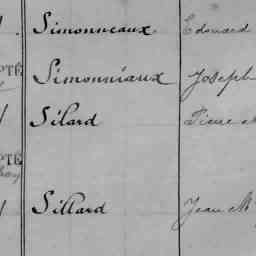 Simonneaux. Edouard
PTÉ
Simonniaux Joseph
Silard Pierre M
PTÉ
Sillard Jean M